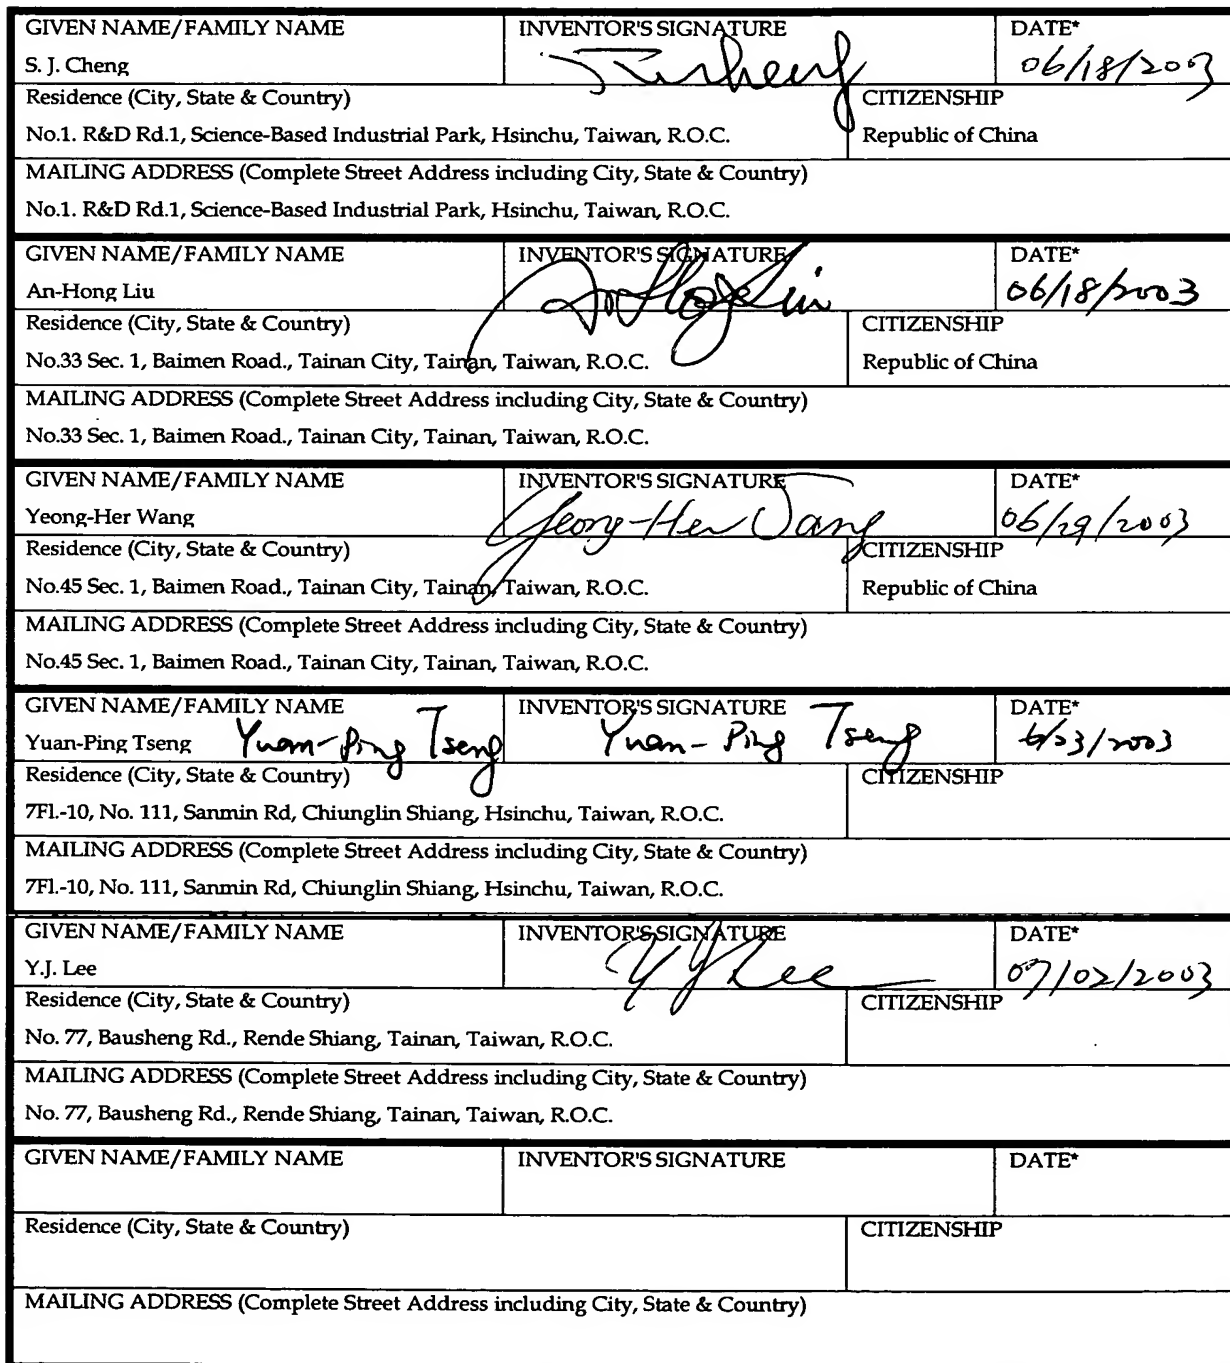 GIVEN NAME/FAMILY NAME INVENTOR'S SIGNATURE DATE*
S. J. Cheng 06/18/2003
Residence (City, State & Country) CITIZENSHIP
No.1. R&D Rd.1, Science-Based Industrial Park, Hsinchu, Taiwan, R.O.C. Republic of China
MAILING ADDRESS (Complete Street Address including City, State & Country)
No.1. R&D Rd.1, Science-Based Industrial Park, Hsinchu, Taiwan, R.O.C.
GIVEN NAME/FAMILY NAME INVENTOR'S SIGNATURE DATE*
An-Hong Liu 06/18/2003
Residence (City, State & Country) CITIZENSHIP
No.33 Sec. 1, Baimen Road., Tainan City, Tainan, Taiwan, R.O.C. Republic of China
MAILING ADDRESS (Complete Street Address including City, State & Country)
No.33 Sec. 1, Baimen Road., Tainan City, Tainan, Taiwan, R.O.C.
GIVEN NAME/FAMILY NAME INVENTOR'S SIGNATURE DATE*
Yeong-Her Wang Yeong-Her Wang 06/29/2003
Residence (City, State & Country) CITIZENSHIP
No.45 Sec. 1, Baimen Road., Tainan City, Tainan, Taiwan, R.O.C. Republic of China
MAILING ADDRESS (Complete Street Address including City, State & Country)
No.45 Sec. 1, Baimen Road., Tainan City, Tainan, Taiwan, R.O.C.
GIVEN NAME/FAMILY NAME INVENTOR'S SIGNATURE DATE*
Yuan-Ping Tseng Yuan-Ping Tseng Yuan-Ping Tseng 6/23/2003
Residence (City, State & Country) CITIZENSHIP
7Fl.-10, No. 111, Sanmin Rd, Chiunglin Shiang, Hsinchu, Taiwan, R.O.C.
MAILING ADDRESS (Complete Street Address including City, State & Country)
7Fl.-10, No. 111, Sanmin Rd, Chiunglin Shiang, Hsinchu, Taiwan, R.O.C.
GIVEN NAME/FAMILY NAME INVENTOR'S SIGNATURE DATE*
Y.J. Lee Y J Lee 07/02/2003
Residence (City, State & Country) CITIZENSHIP
No. 77, Bausheng Rd., Rende Shiang, Tainan, Taiwan, R.O.C.
MAILING ADDRESS (Complete Street Address including City, State & Country)
No. 77, Bausheng Rd., Rende Shiang, Tainan, Taiwan, R.O.C.
GIVEN NAME/FAMILY NAME INVENTOR'S SIGNATURE DATE*
Residence (City, State & Country) CITIZENSHIP
MAILING ADDRESS (Complete Street Address including City, State & Country)